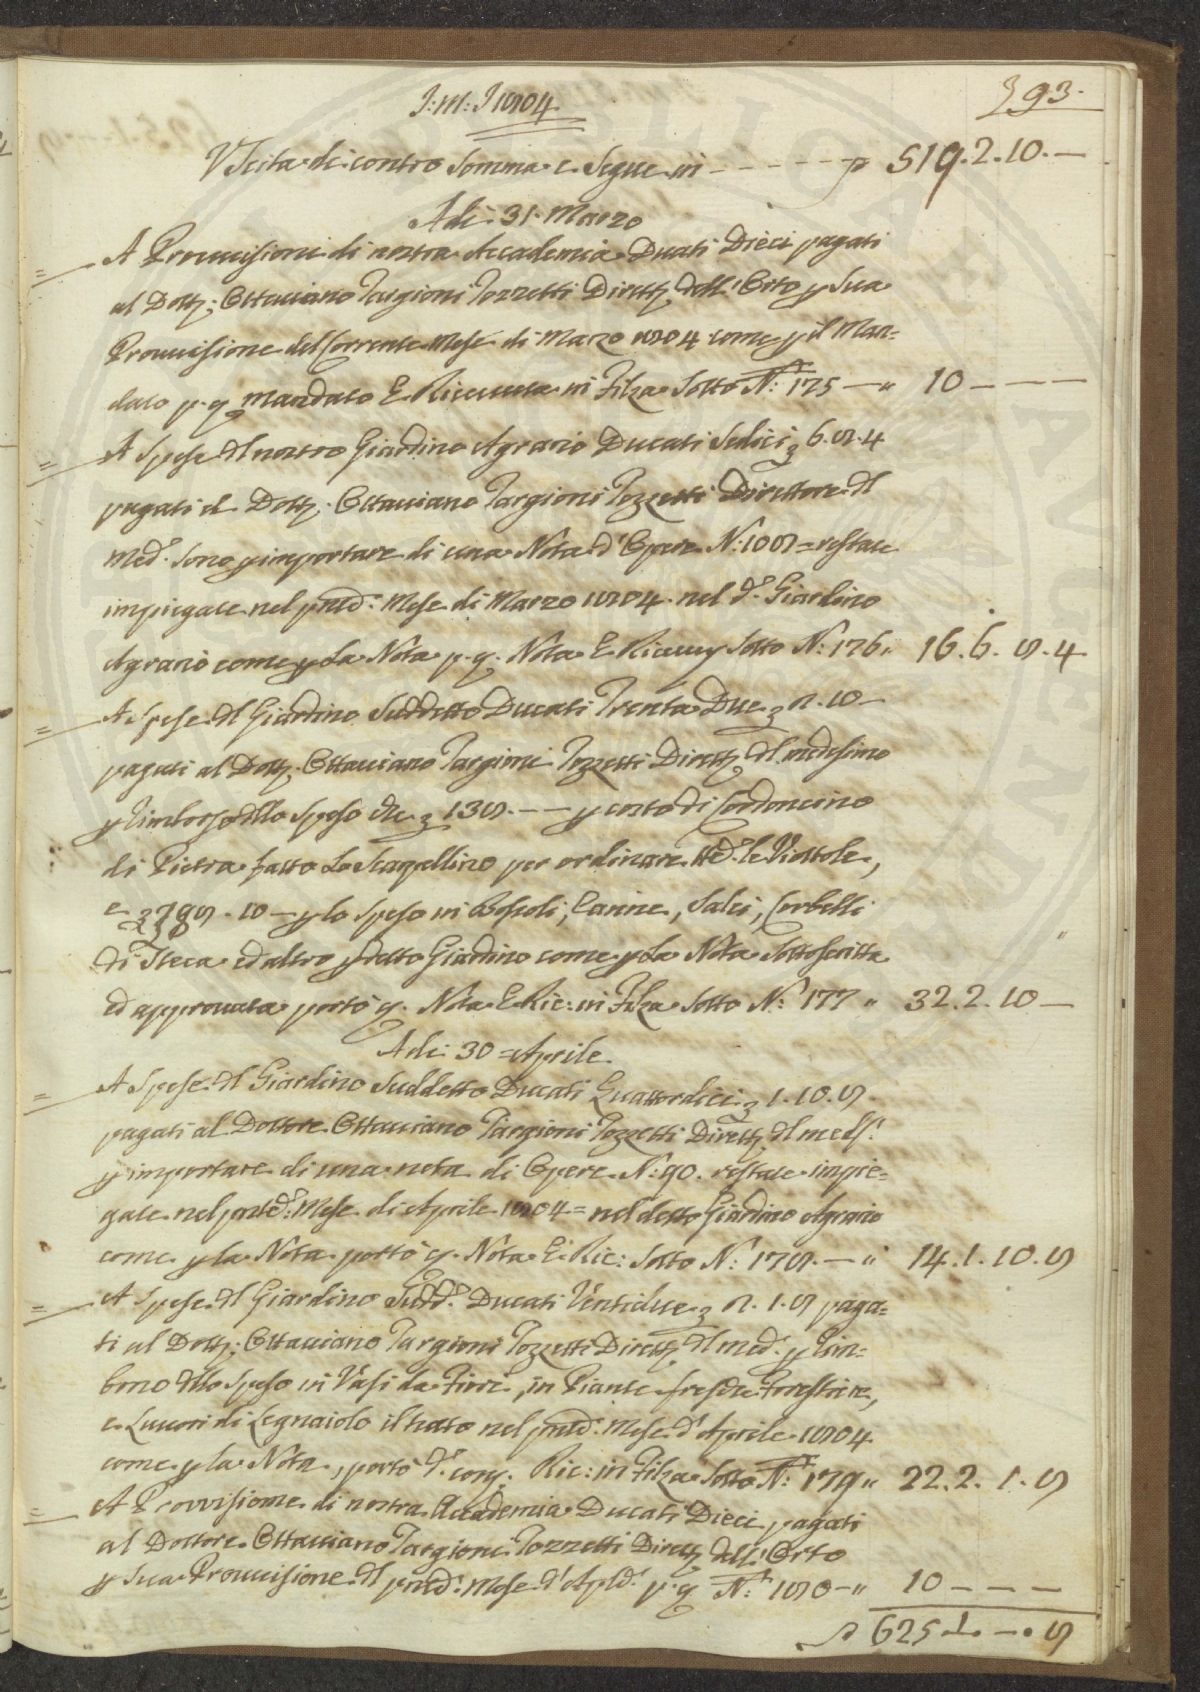 393.
J: M: J 1804
Uscita di contro Somma e Segue in - - - - - - 519. 2. 10. —
Adi: 31. Marzo
A Provvisioni di nostra Accademia Ducati Dieci pagati
al Dott:; Ottaviano Targioni Tozzetti Dirett: dell' Orto p Sua
Provvisione del Corrente Mese di Marzo 1804 come p il Man=
dato p. q. mandato E Ricevuta in Filza Sotto N: 175 — " 10 — — —
A Spese dl nostro Giardino Agrario Ducati Sedici 6. 8. 4
pagati al Dott:. Ottaviano Targioni Tozzetti Direttore dl
Med:o Sono p importare di una Nota d' Opere N: 108 = restate
impiegate nel pnted: Mese di Marzo 1804. nel d:o Giardino
Agrario come p La Nota p. q. Nota E Ricevuy Sotto N: 176 " 16. 6. 8. 4
A Spese dl Giardino Suddetto Ducati Trenta Due 2. 10 —
pagati al Dott: Ottaviano Targioni Tozzetti Dirett: dl medesimo
p Rimborso dllo Speso che 138. — — p costo di Cordoncino
di Pietra fatto Lo Scarpellino per ordinare le Viottole,
e 88. 10 — p lo Speso in Boscoli, Canne, Salci, Corbelli
di Steca ed altro p detto Giardino come p La Nota Sottoscritta
ed approvata portò q. Nota E Ric: in Filza Sotto N: 177 " 32. 2. 10 —
Adi: 30 = Aprile
A Spese dl Giardino Suddetto Ducati Quattordici 1. 10. 8.
pagati al Dottore Ottaviano Targioni Tozzetti Dirett: dl med:
p importare di una nota di Opere N: 90. restate impie=
gate nel pnted: Mese di Aprile 1804 = nel detto Giardino Agrario
come p la Nota portò q. Nota E Ric: Sotto N: 178. — " 14. 1. 10. 8
A Spese dl Giardino Sudd:o Ducati Ventidue 2. 1. 8 paga=
ti al Dott:; Ottaviano Targioni Tozzetti Dirett: dl med: p Rim=
borso dllo Speso in Vasi da Fiori, in Piante fresche Forestiere,
e Lavori di Legnaiolo il tutto nel pnted: Mese d' Aprile 1804
come p la Nota, portò d:o Ric: in Filza Sotto N: 179 " 22. 2. 1. 8
A Provvisione di nostra Accademia Ducati Dieci pagati
al Dottore Ottaviano Targioni Tozzetti Dirett: dell' Orto
p Sua Provvisione dl pnted: Mese d' Aple: p. q N: 180 — " 10 — — —
625. 1. — . 8